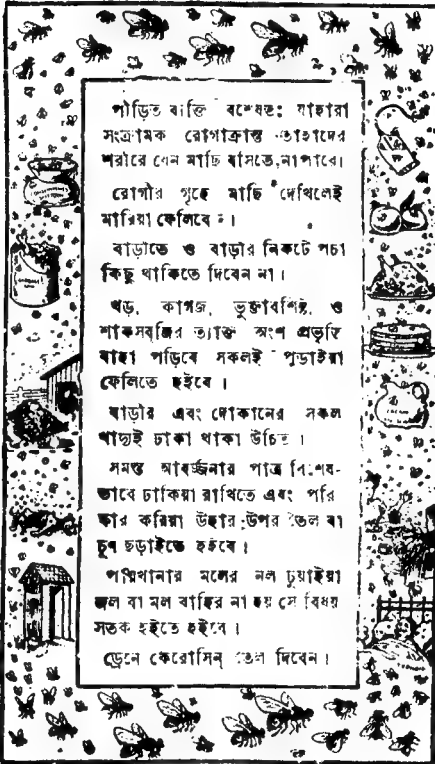 পীড়িত ব্যক্তি বিশেষতঃ যাহারা
সংক্রামক রোগাক্রান্ত তাহাদের
শরীরে যেন মাছি বসিতে না পারে।
রোগীর গৃহে মাছি দেখিলেই
মারিয়া ফেলিবেন।
বাড়ীতে ও বাড়ীর নিকটে পচা
কিছু থাকিতে দিবেন না।
খড়, কাগজ, ভুক্তাবশিষ্ট, ও
শাকসবজির ত্যাক্ত অংশ প্রভৃতি
যাহা পড়িবে সকলই পুড়াইয়া
ফেলিতে হইবে।
বাড়ীর এবং দোকানের সকল
খাদ্যই ঢাকা থাকা উচিত।
সমস্ত আবর্জ্জনার পাত্র বিশেষ-
ভাবে ঢাকিয়া রাখিতে এবং পরি
ষ্কার করিয়া উহার উপর তৈল বা
চূণ ছড়াইতে হইবে।
পায়খানার মলের নল চুয়াইয়া
জল বা মল বাহির না হয় সে বিষয়
সতর্ক হইতে হইবে।
ড্রেনে কেরোসিন্ তেল দিবেন।